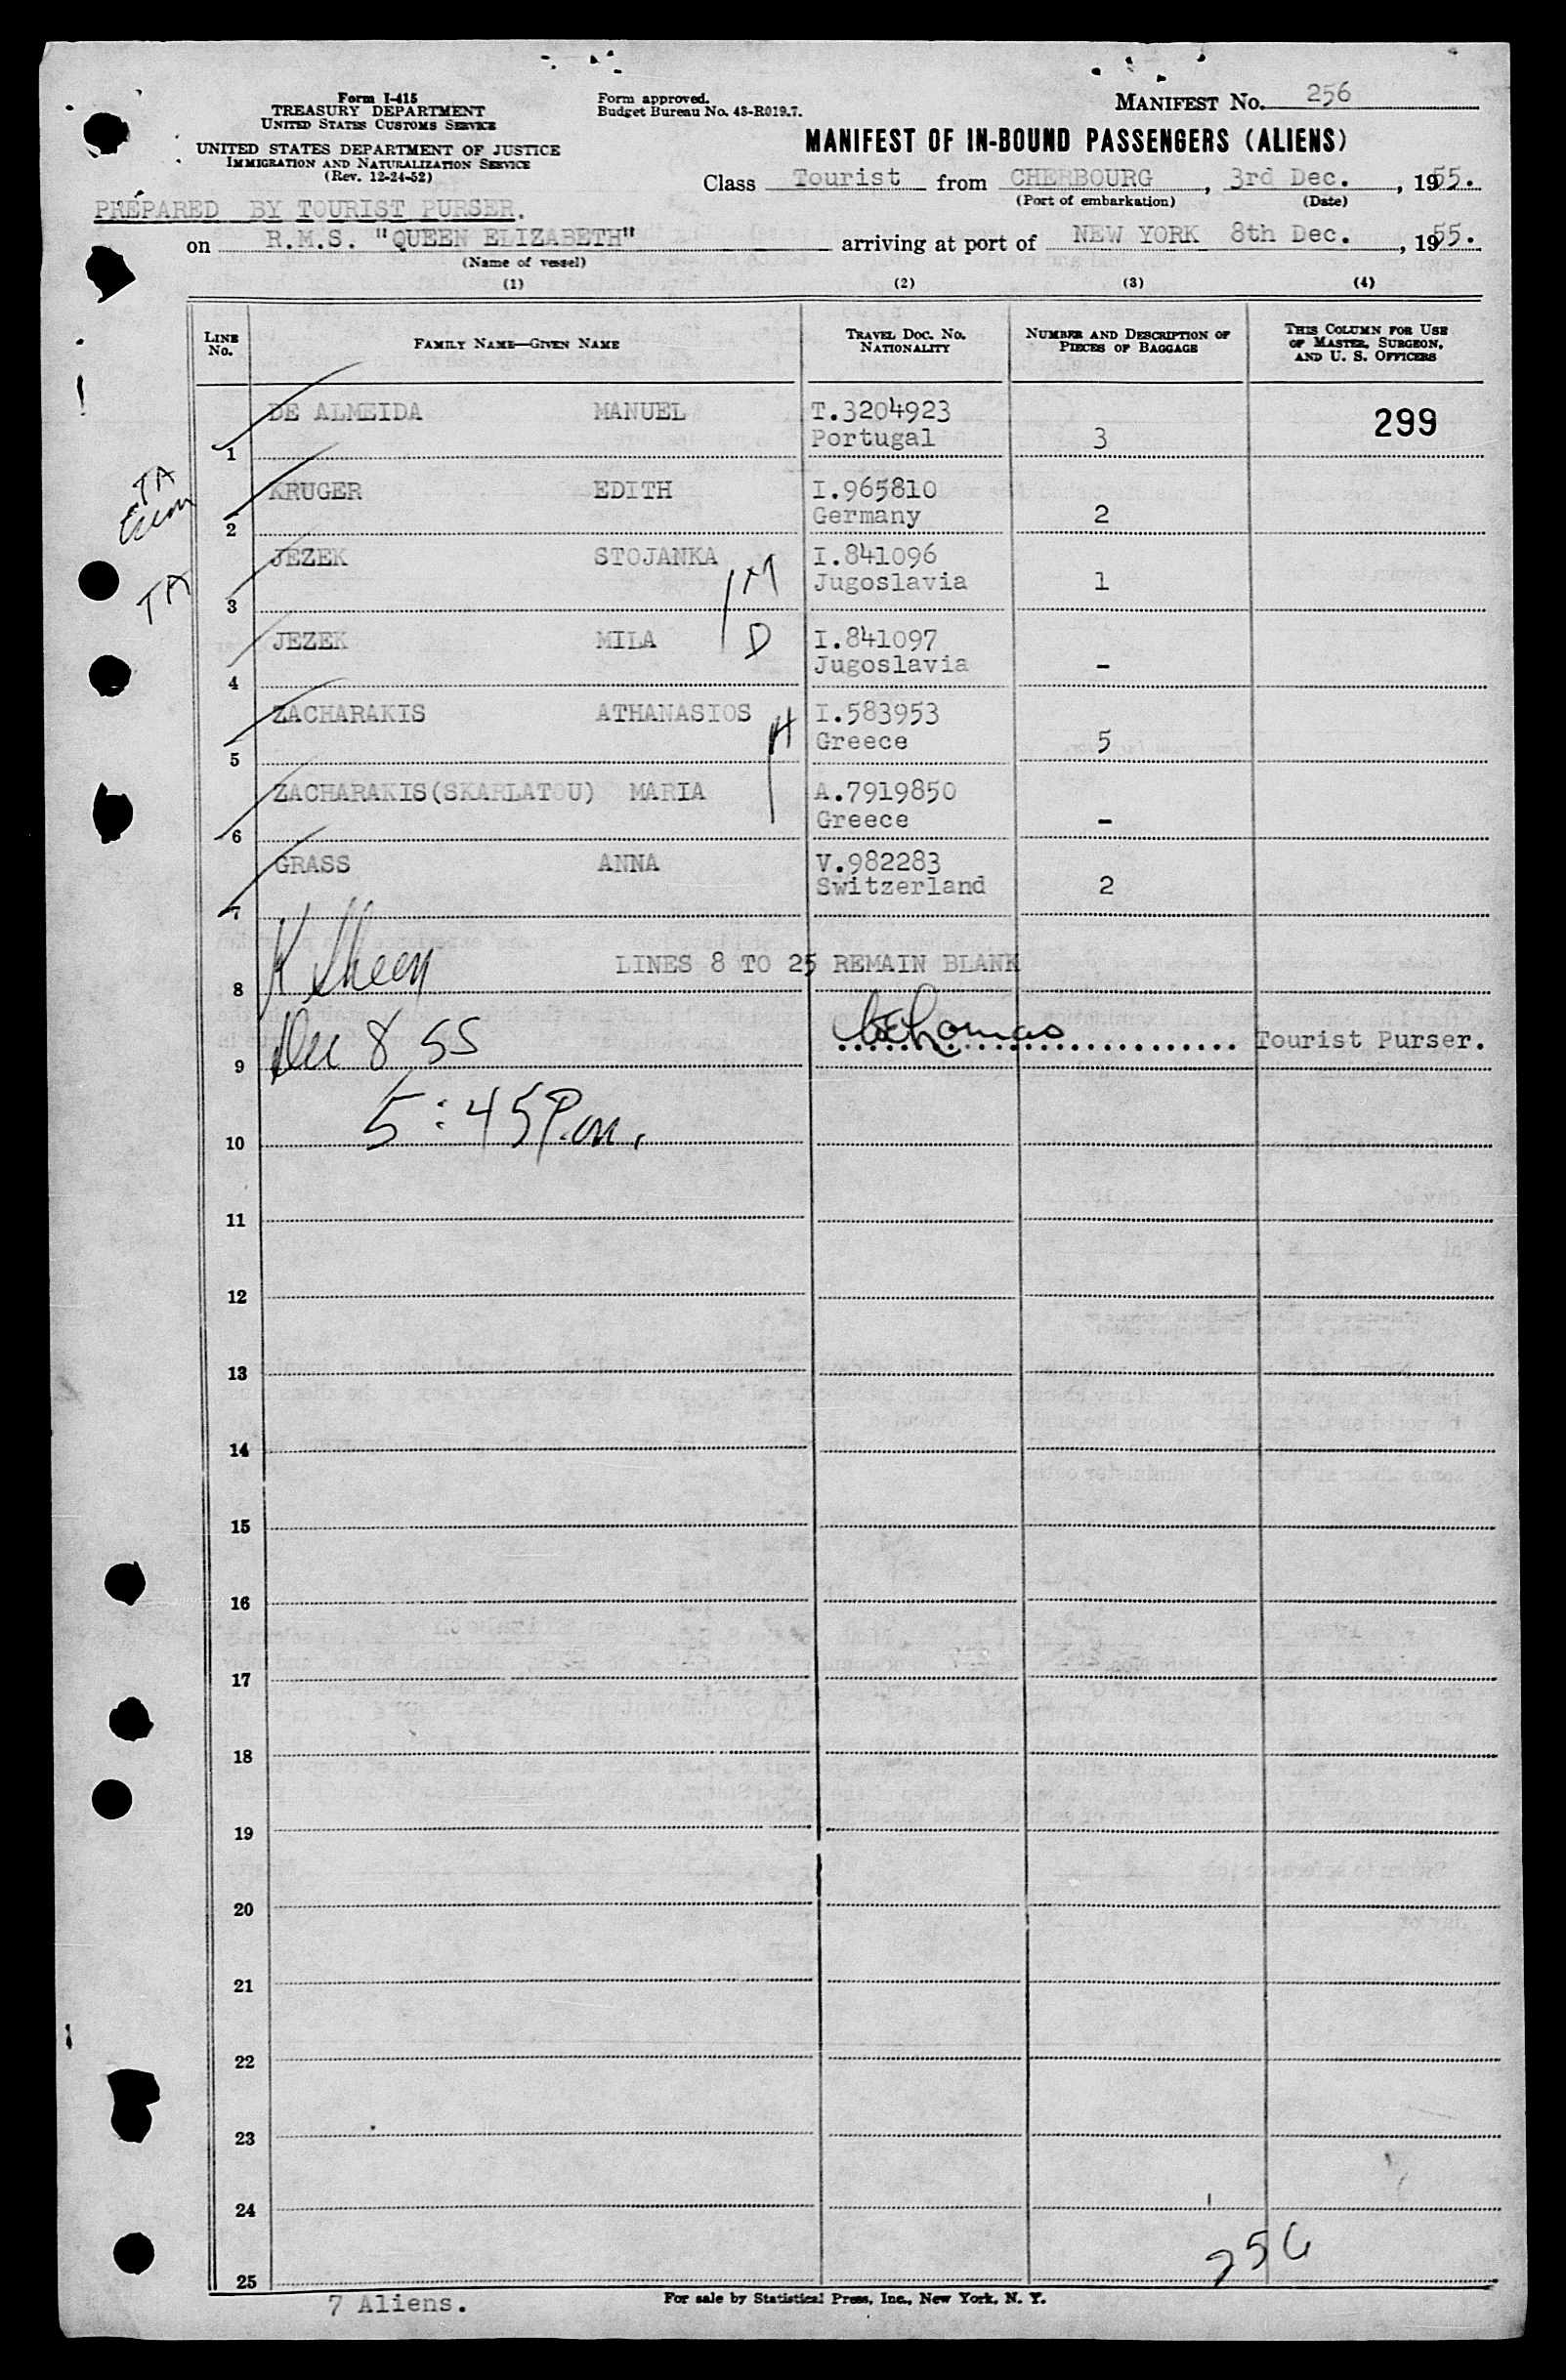 Form I-415
TREASURY DEPARTMENT
UNITED STATES CUSTOMS SERVICE
UNITED STATES DEPARTMENT OF JUSTICE
IMMIGRATION AND NATURALIZATION SERVICE
(Rev. 12-24-52)
Form approved.
Budget Bureau No. 43-R019.7.
MANIFEST No. 256
MANIFEST OF IN-BOUND PASSENGERS (ALIENS)
Class Tourist from CHERBOURG, 3rd Dec., 1955.
(Port of embarkation) (Date)
PREPARED BY TOURIST PURSER.
on R.M.S. "QUEEN ELIZABETH" arriving at port of NEW YORK 8th Dec., 1955.
(Name of vessel)
(1) (2) (3) (4)
LINE No. FAMILY NAME—GIVEN NAME TRAVEL DOC. No. NATIONALITY NUMBER AND DESCRIPTION OF PIECES OF BAGGAGE THIS COLUMN FOR USE OF MASTER, SURGEON, AND U. S. OFFICERS
DE ALMEIDA MANUEL T.3204923 299
1 Portugal 3
TA
KRUGER EDITH I.965810
2 Germany 2
JEZEK STOJANKA I.841096
TA
3 M Jugoslavia 1
JEZEK MILA D I.841097
4 Jugoslavia -
ZACHARAKIS ATHANASIOS H I.583953
5 Greece 5
ZACHARAKIS(SKARLATOU) MARIA A.7919850
6 Greece -
GRASS ANNA V.982283
7 Switzerland 2
LINES 8 TO 25 REMAIN BLANK
8 K Sheen
9 Dec 8 55 Thomas Tourist Purser.
10 5:45 P.m.
11
12
13
14
15
16
17
18
19
20
21
22
23
24
256
25
7 Aliens. For sale by Statistical Press, Inc., New York, N. Y.